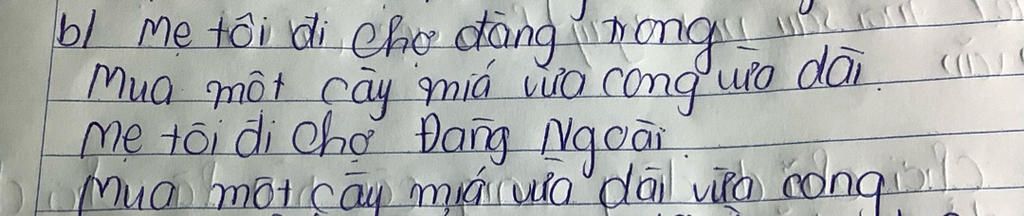 b/ Mẹ tôi đi chợ đàng trong
Mua một cây miá vừa cong vừa dài.
Mẹ tôi đi chợ Đàng Ngoài.
Mua một cây miá vừa dài vừa cong